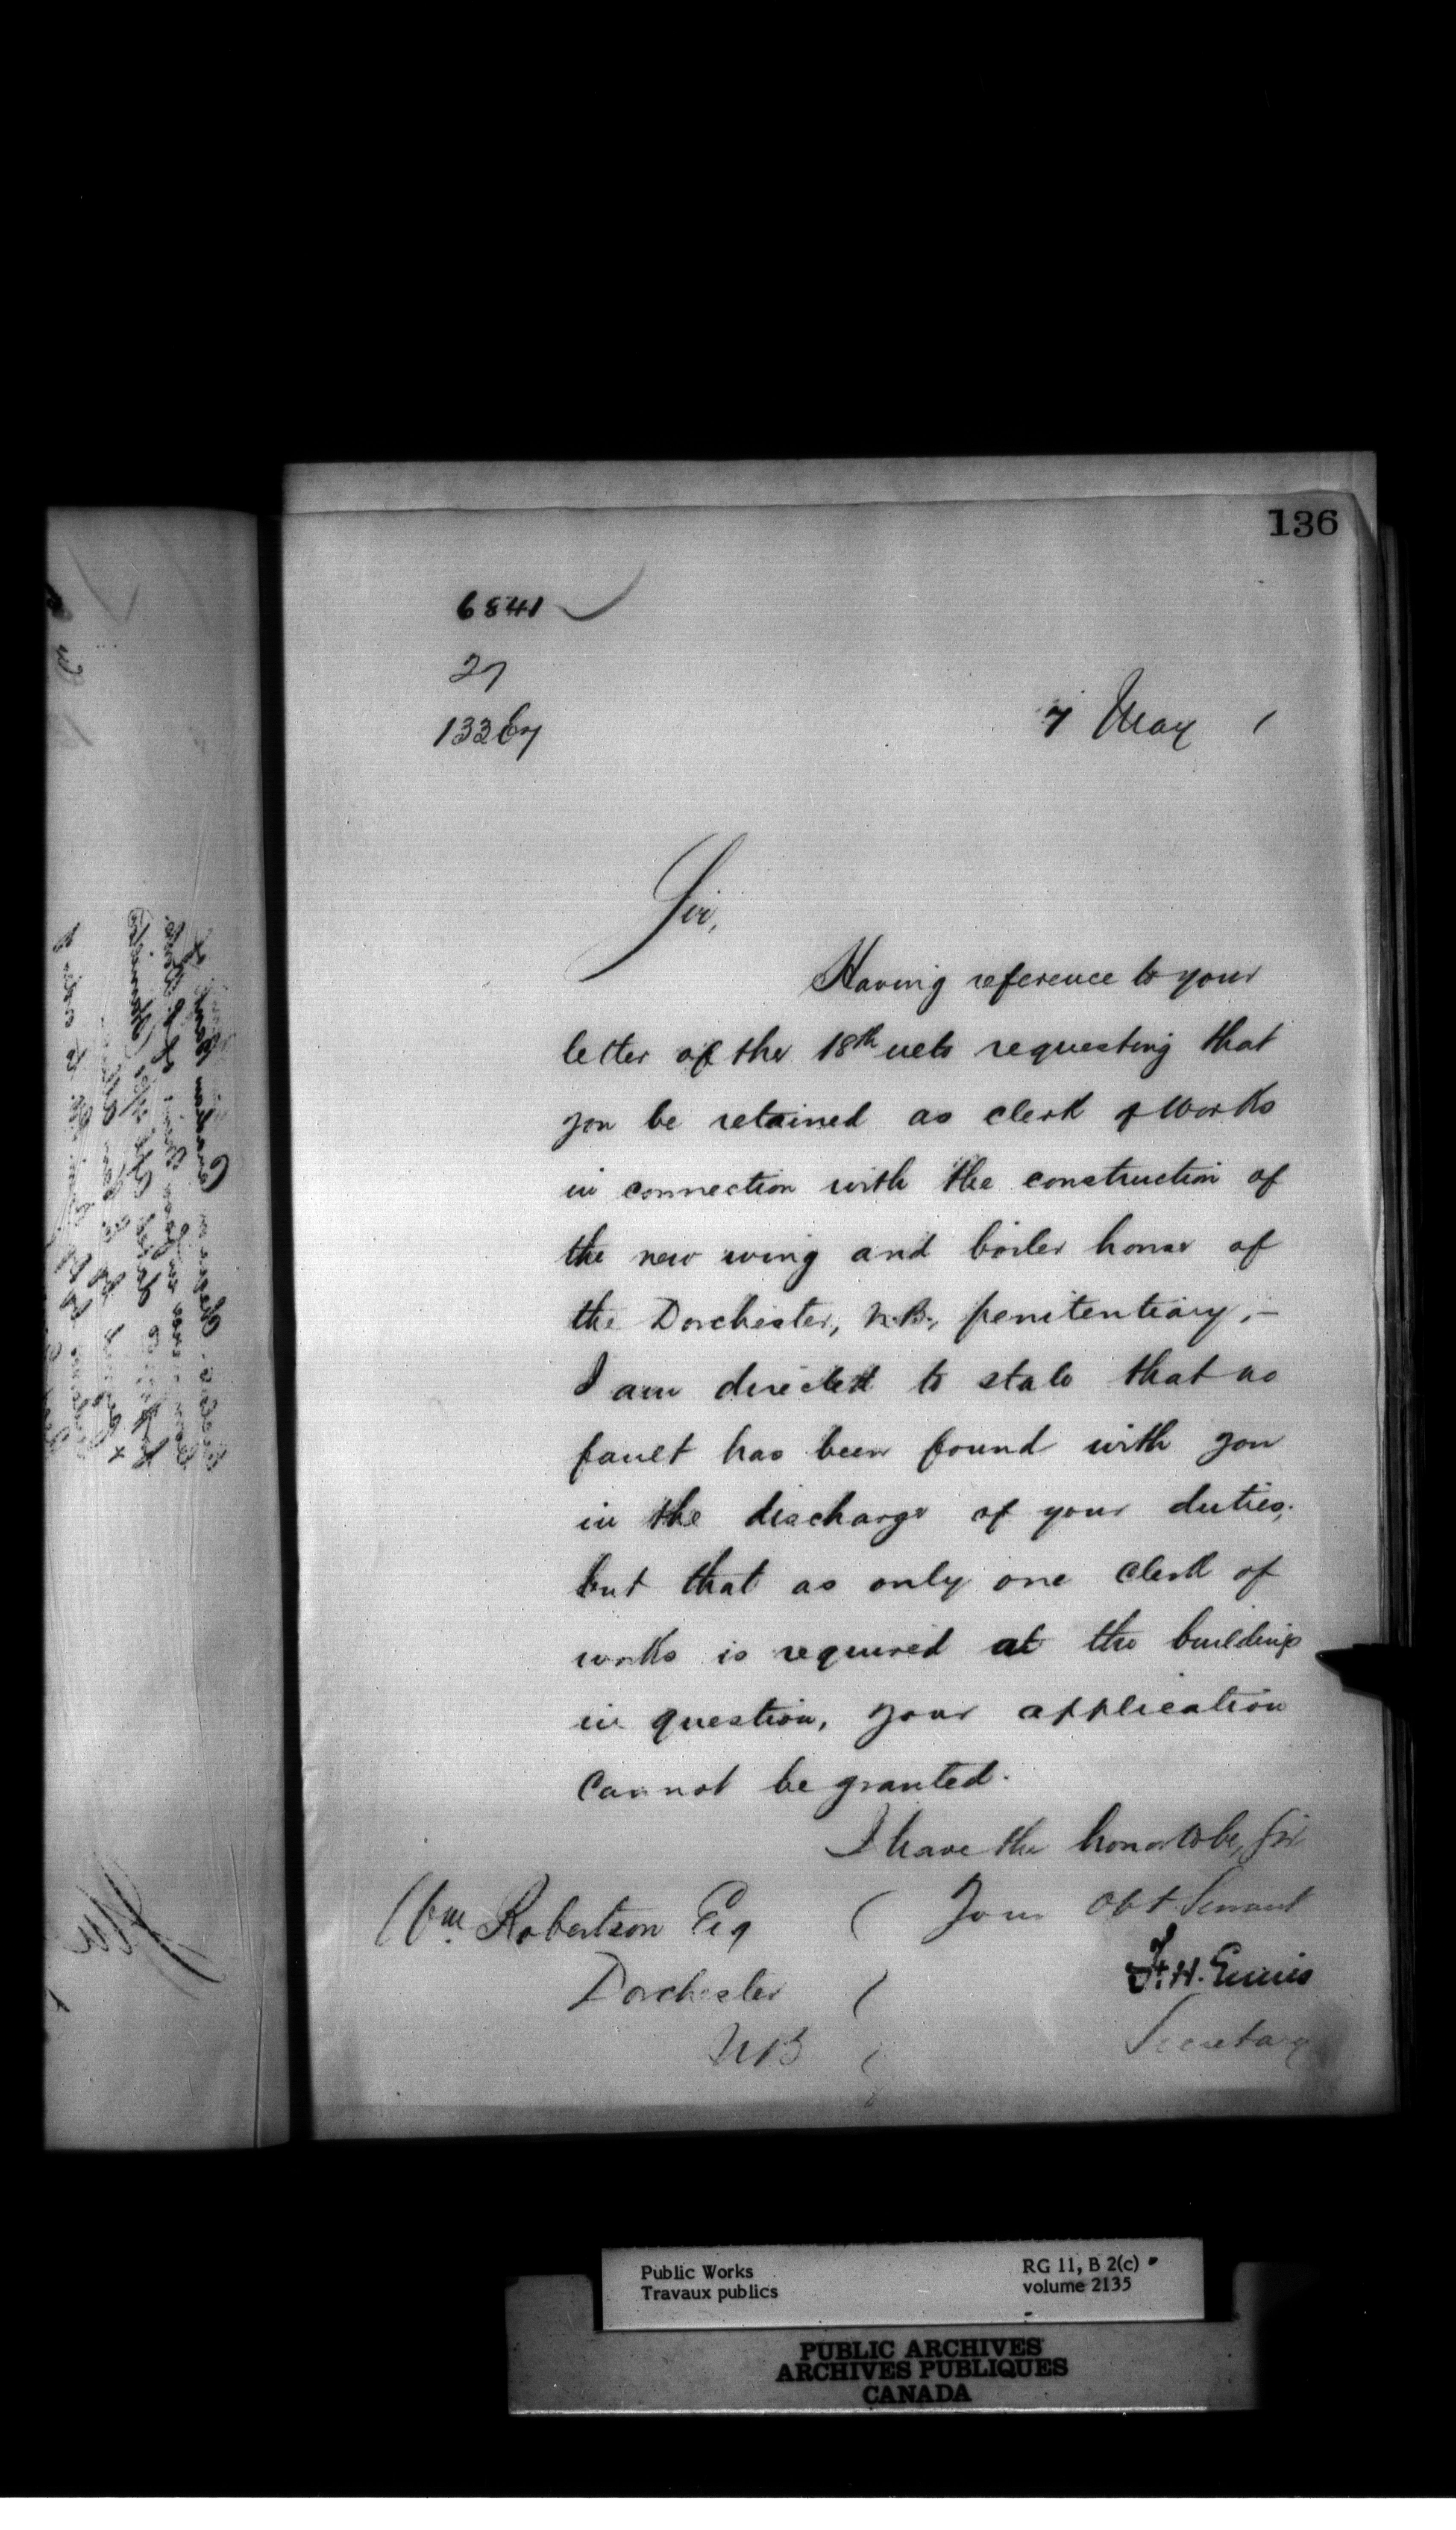 136
6841
27
13367
7 May 1
Sir,
Having reference to your
letter of the 18th ulto requesting that
you be retained as clerk of works
in connection with the construction of
the new wing and boiler house of
the Dorchester, N.B., penitentiary, —
I am directed to state that no
fault has been found with you
in the discharge of your duties,
but that as only one clerk of
works is required at the buildings
in question, your application
cannot be granted.
I have the honor to be, Sir
Your Obt Servant
F. H. Ennis
Secretary
Wm. Robertson Esq
Dorchester
NB
Public Works
Travaux publics
RG 11, B 2(c)
volume 2135
PUBLIC ARCHIVES
ARCHIVES PUBLIQUES
CANADA